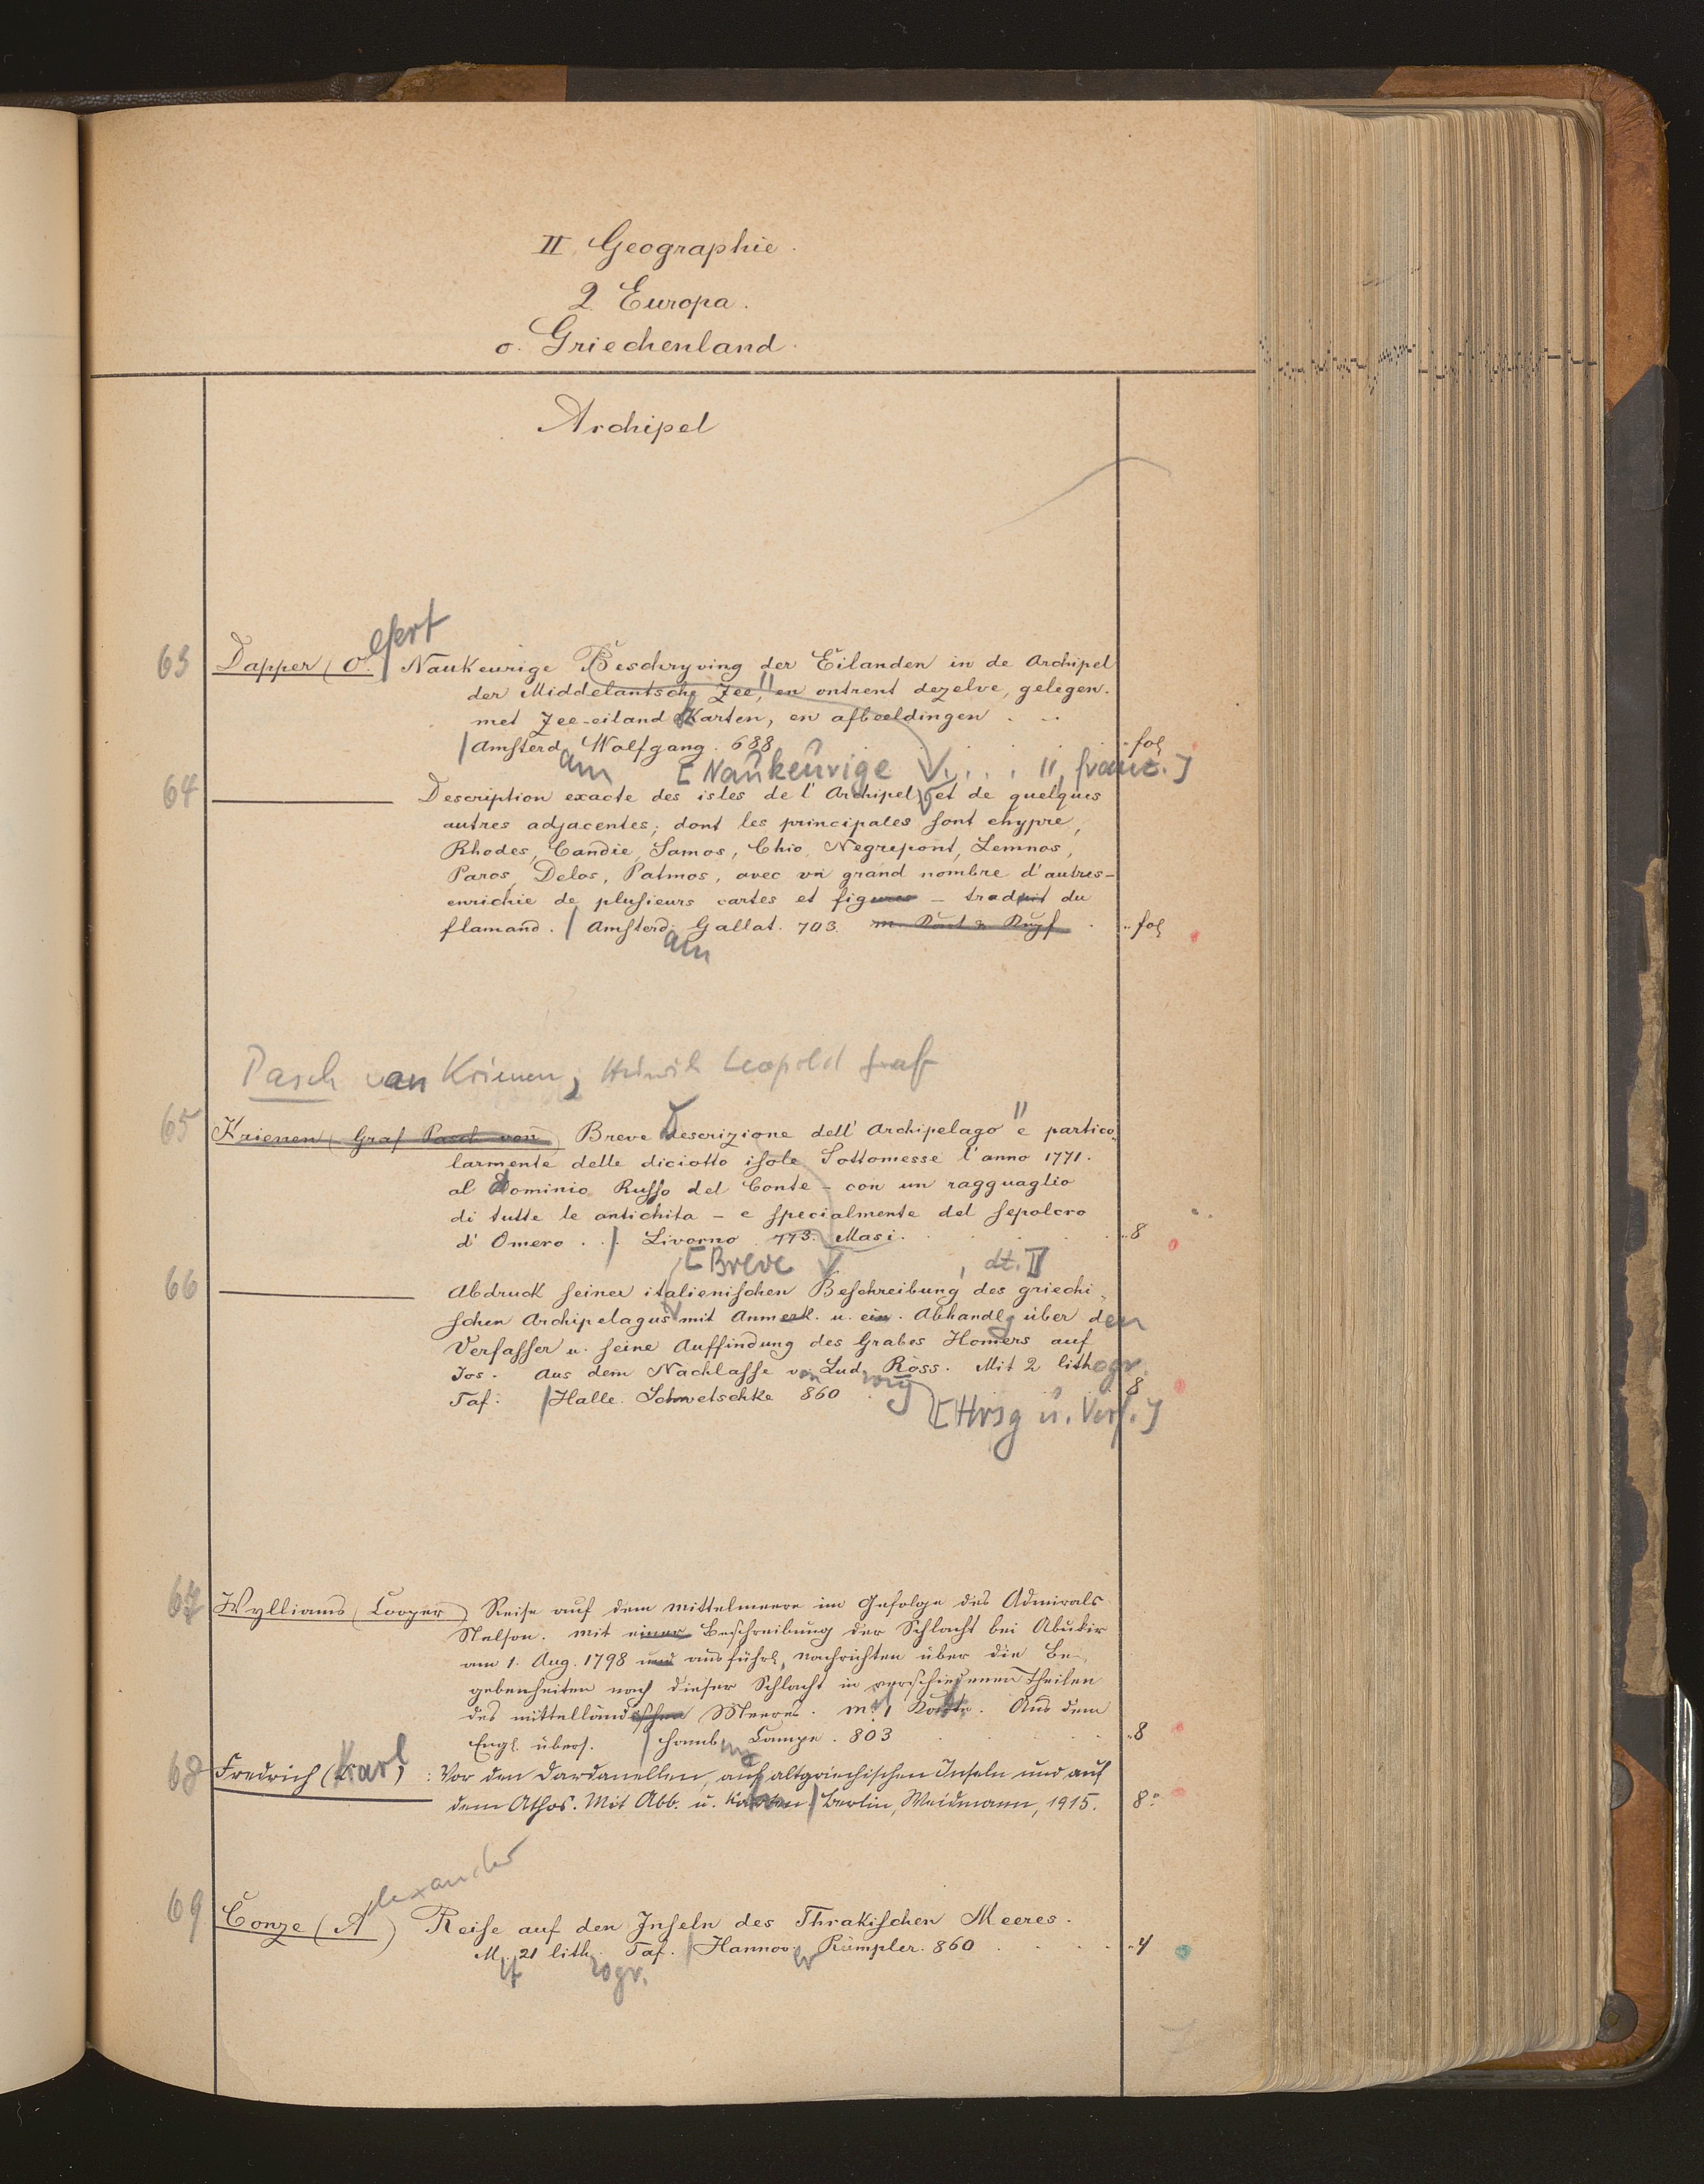 II Geographie.
2. Europa.
o. Griechenland.
Archipel
63 Dapper (O.lfert) Naukeurige Beschryving der Eilanden in de Archipel
der Middelantsche Zee, en ontrent dezelve, gelegen.
met Zee-eiland Karten, en afbeeldingen . . .
Amsterd Wolfgang. 688 fol
am [Naukeurige V . . . ", franz.]
64 Description exacte des isles de l'Archipel et de quelques
autres adjacentes; dont les principales sont chypre,
Rhodes, Candie, Samos, Chio, Negrepont, Lemnos,
Paros, Delos, Patmos, avec un grand nombre d'autres-
enrichie de plusieurs cartes et figures - traduit du
flamand. | Amsterd. Gallat. 703. fol
am
Pasch van Krienen, Heinrich Leopold Graf
65 Krienen (Graf Pasch von) Breve Descrizione dell' Archipelago" e partico-
larmente delle diciotto isole Sottomesse l'anno 1771.
al dominio Russo del Conte - con un ragguaglio
di tutte le antichita - e specialmente del sepolcro
d' Omero . . | Livorno 773. Masi. 8
[Breve V , dt.]
66 Abdruck seiner italienischen Beschreibung des griechi-
schen Archipelagus mit Anmerk. u. ein. Abhandlg über den
Verfasser u. seine Auffindung des Grabes Homers auf
Jos. Aus dem Nachlasse von Ludwig Ross. Mit 2 lithogr.
Taf: | Halle. Schwetschke 860 8
[Hrsg u. Verf.]
67 Wylliams (Cooper) Reise auf dem Mittelmeere im Gefolge des Admirals
Nelson. Mit einer Beschreibung der Schlacht bei Abukir
am 1. Aug. 1798 und ausführl. Nachrichten über die Be-
gebenheiten nach dieser Schlacht in verschiedenen Theilen
des mittelländischen Meeres. M. 1 Karte. Aus dem
Engl. übers. | Hamburg Campe. 803 8
68 Fredrich (Karl) : Vor den Dardanellen, auf altgriechischen Inseln und auf
dem Athos. Mit Abb. u. Karten | Berlin, Weidmann, 1915. 8°
69 Conze (Alexander) Reise auf den Inseln des Thrakischen Meeres.
M. 21 lith. Taf. | Hannov. Rümpler. 860 4
it ogr. er